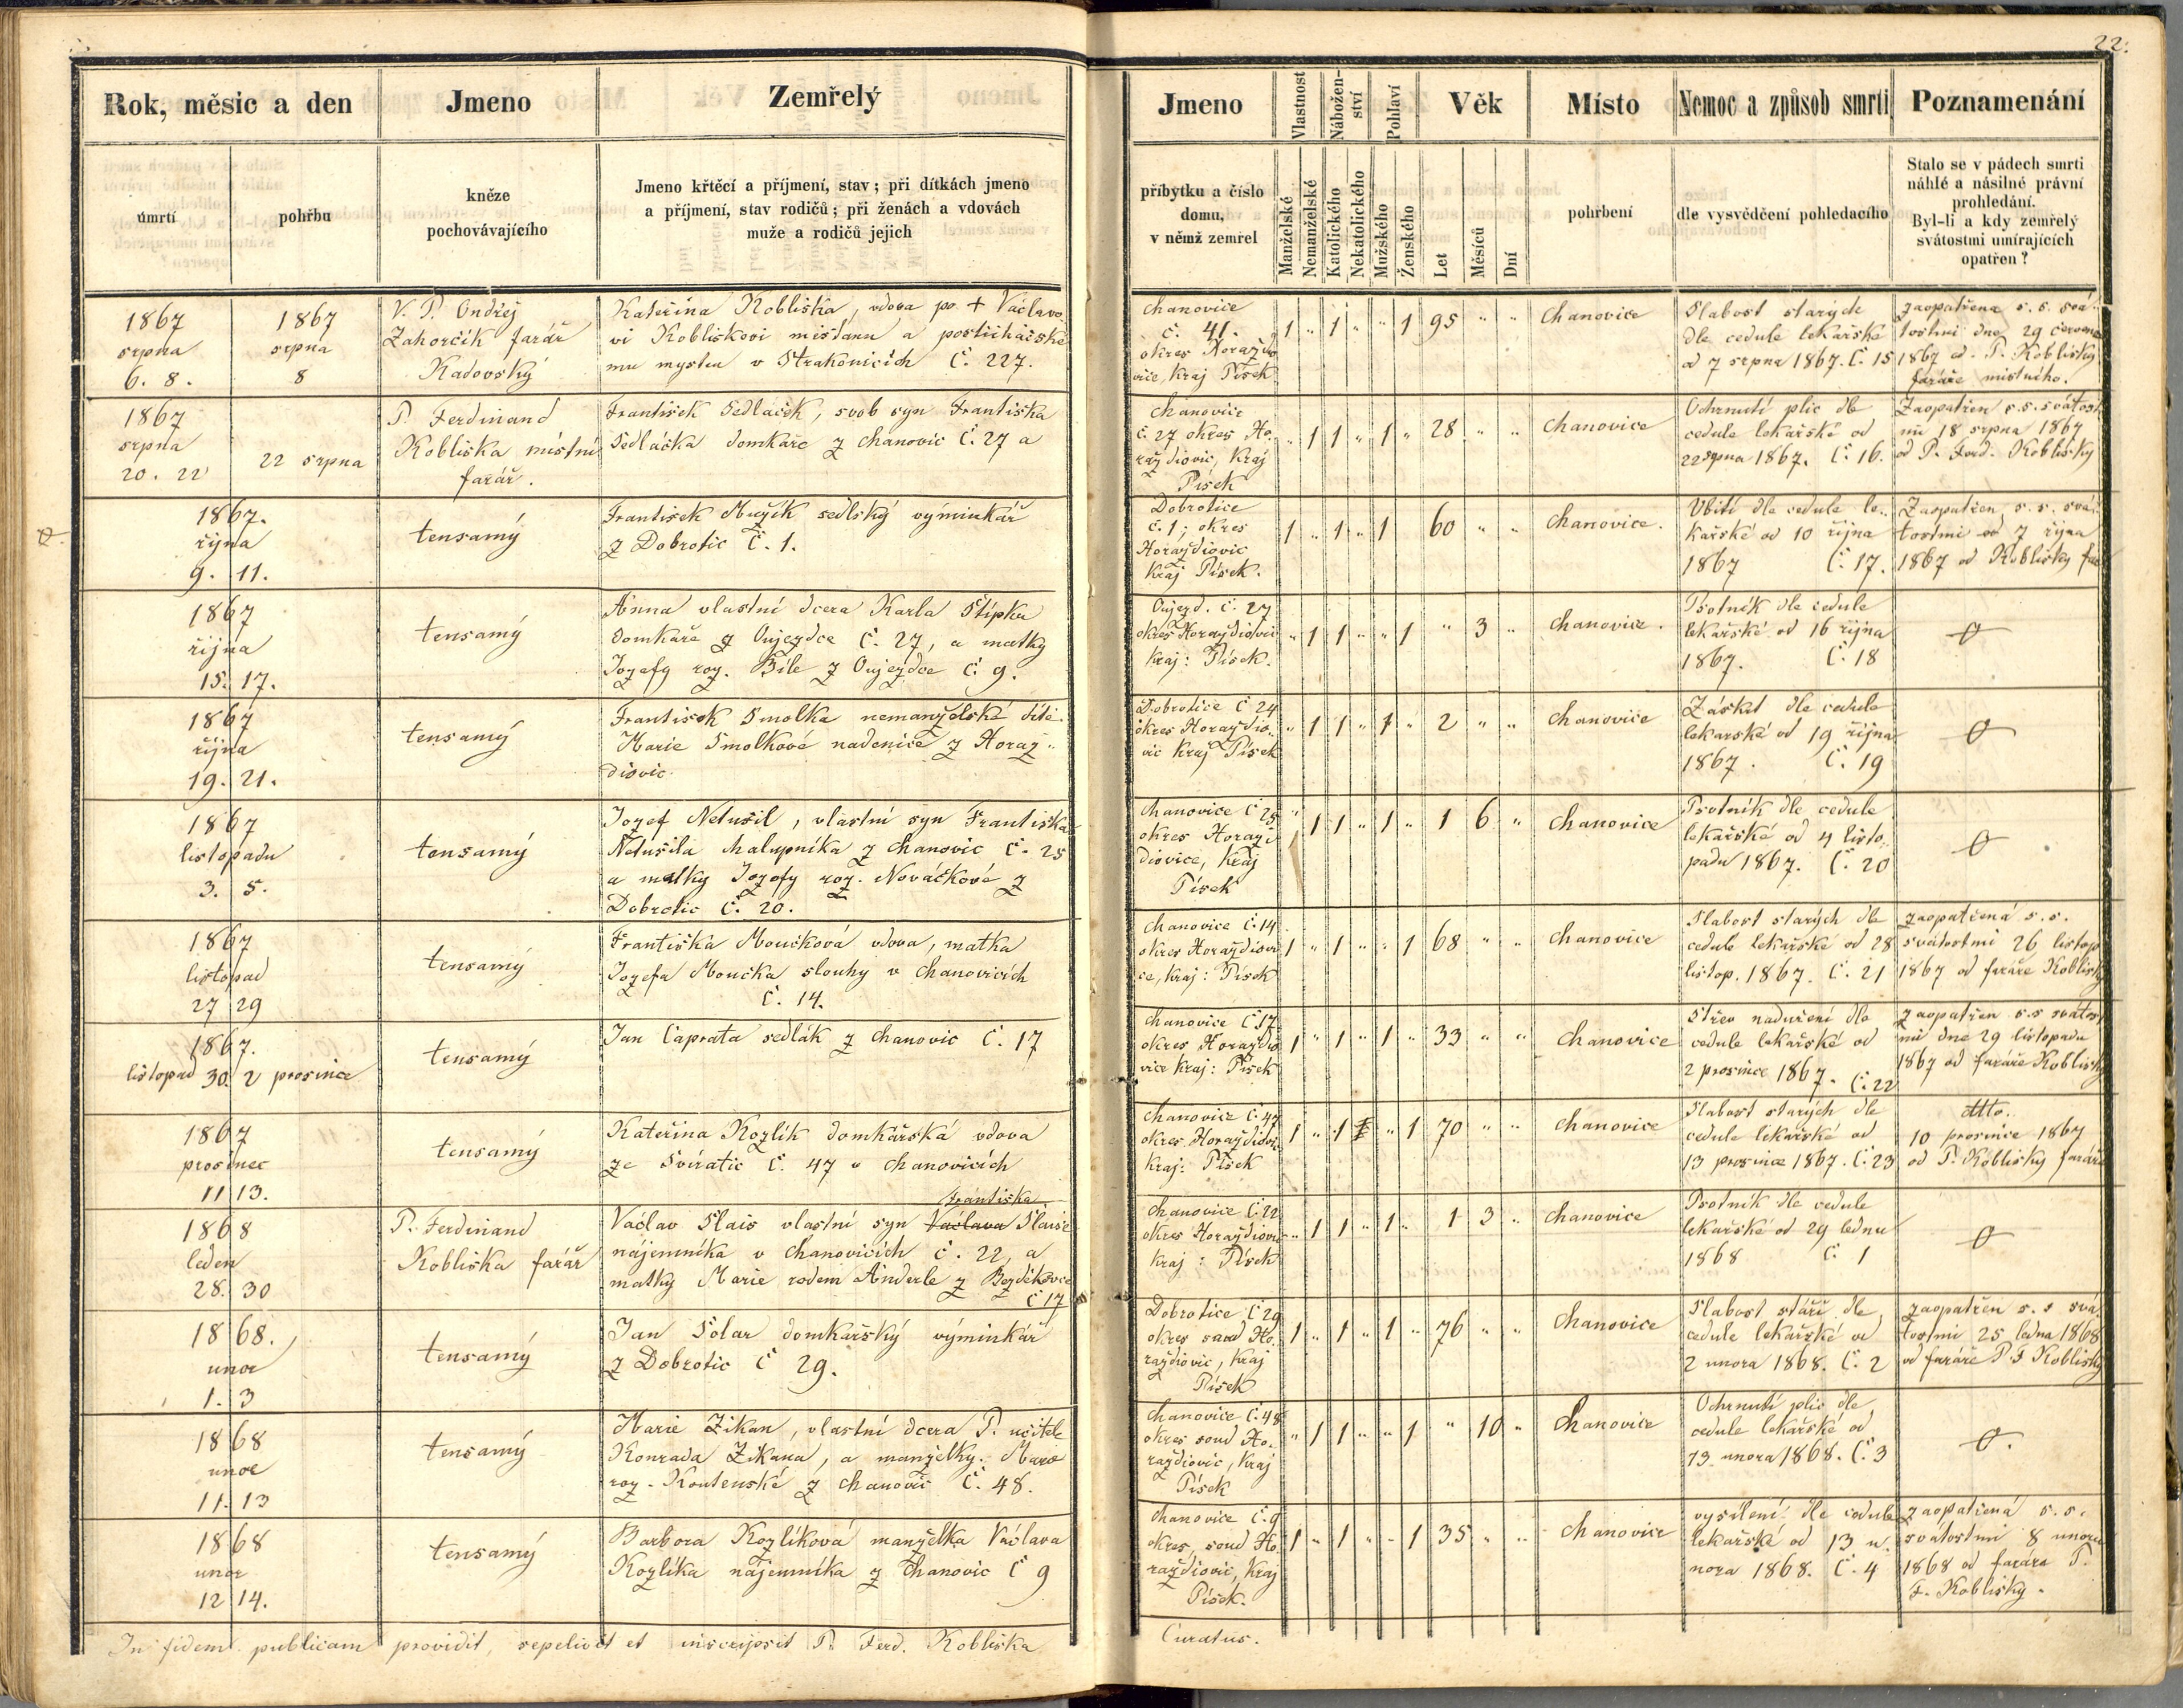 22.
Rok, měsic a den
Jmeno
Zemřelý
úmrtí
pohřbu
kněze
pochovávajícího
Jmeno křtěcí a příjmení, stav; při dítkách jmeno
a příjmení, stav rodičů; při ženách a vdovách
muže a rodičů jejich
Jmeno
Vlastnost
Nábožen-
ství
Pohlaví
Věk
Místo
Nemoc a způsob smrti
Poznamenání
příbytku a číslo
domu,
v němž zemřel
Manželské
Nemanželské
Katolického
Nekatolického
Mužského
Ženského
Let
Měsíců
Dní
pohrbení
dle vysvědčení pohledacího
Stalo se v pádech smrti
náhlé a násilné právní
prohledání.
Byl-li a kdy zemřelý
svátostmi umírajících
opatřen?
1867
srpna
6. 8.
1867
srpna
8
V. P. Ondřej
Zahorčík farář
Kadovský
Kateřina Kobliška, vdova po + Václavo
vi Kobliškovi mištanu a postřihačské
mu mystru v Strakonicích Č. 227.
Chanovice
č. 41.
okres Horaždo
vice, Kraj Písek
1 " 1 " " 1 95 " "
Chanovice
Slabost starých
dle cedule lekařské
od 7 srpna 1867. Č. 15
zaopatřena s. s. svá
tostmi dne 29 července
1867 od P. Koblišky
faráře místního.
1867
srpna
20. 22
22 srpna
P. Ferdinand
Kobliška místní
farář.
František Sedláček, svob syn Františka
Sedláčka domkáře z Chanovic Č. 27 a
Chanovice
č. 27 okres Ho
raždiovic, Kraj
Písek
" 1 1 " 1 " 28 " "
Chanovice
Ochrnutí plic dle
cedule lekařské od
22 srpna 1867. Č. 16.
Zaopatřen s. s. svátost
mi 18 srpna 1867
od P. Ferd. Koblišky
1867.
října
9. 11.
tensamý
František Mužík sedlský výminkář
z Dobrotic Č. 1.
Dobrotice
č. 1, okres
Horaždiovic
Kraj Písek.
1 " 1 " 1 60 " "
Chanovice.
Ubití dle cedule le-
kařské od 10 října
1867 Č. 17.
Zaopatřen s. s. svá
tostmi od 7 října
1867 od Koblišky far
1867
října
15. 17.
tensamý
Anna vlastní dcera Karla Štípka
domkáře z Oujezdce Č. 27, a matky
Jozefy roz. Bíle z Oujezdce č. 9.
Oujezd. č. 27
okres Horaždiovic
Kraj: Písek.
" 1 1 " " 1 " 3 "
Chanovice.
Psotník dle cedule
lekařské od 16 října
1867. Č. 18
1867
října
19. 21.
tensamý
František Smolka nemanželské dítě
Marie Smolkové nadenice z Horaz-
diovic.
Dobrotice Č 24
okres Horaždio-
vic Kraj Písek
" 1 1 " 1 " 2 " "
Chanovice
Záskrt dle cedule
lekarské od 19 října
1867. Č. 19
1867
listopadu
3. 5.
tensamý
Jozef Netušil, vlastní syn Františka
Netušila chalupníka z Chanovic Č. 25
a matky Jozefy roz. Nováčkové z
Dobrotic Č. 20.
Chanovice č 25
okres Horazi
diovice, Kraj
Písek
" 1 1 " 1 " 1 6 "
Chanovice
Psotník dle cedule
lekařské od 4 listo
padu 1867. Č. 20
1867
listopad
27 29
tensamý
Františka Moučková vdova, matka
Jozefa Moučka slouhy v Chanovicích
č. 14.
Chanovice č. 14
okres Horaždiovi
ce, Kraj: Písek
1 " 1 " " 1 68 " "
Chanovice
Slabost starých dle
cedule lekařské od 28
listop. 1867. Č. 21
zaopatřená s. s.
svátostmi 26 listop
1867 od faráře Koblišky
1867.
listopad 30. 2 prosince
tensamý
Jan Caprata sedlák z Chanovic Č. 17
Chanovice č 17
okres Horaždio
vice Kraj: Písek
1 " 1 " 1 " 33 " "
Chanovice
Střev naduření dle
cedule lekařské od
2 prosince 1867. Č. 22
zaopatřen s. s svátost
mi dne 29 listopadu
1867 od faráře Koblišky
1867
prosinec
11 13.
tensamý
Kateřina Kozlík domkářská vdova
ze Svíratic č. 47 v Chanovicích
Chanovice č. 47
okres Horaždiov
Kraj: Písek
1 " 1 " 1 70 " "
Chanovice
Slabost starých dle
cedule lekařské od
13 prosince 1867. Č. 23
dtto.
10 prosince 1867
od P. Koblišky faráře
1868
leden
28. 30
P. Ferdinand
Kobliška farář
Františka
Václav Slais vlastní syn Václava Slaise
nájemníka v Chanovicích č. 22, a
matky Marie rodem Anderle z Bezděkovce
č 17
Chanovice č. 22
okres Horaždiovic
Kraj: Písek
" 1 1 " 1 " 1 3 "
Chanovice
Psotník dle cedule
lekařské od 29 lednu
1868 č. 1
1868.
unor
1. 3
tensamý
Jan Solar domkařský výminkář
z Dobrotic č 29.
Dobrotice č 29
okres soud Ho
raždiovic, Kraj
Písek
1 " 1 " 1 " 76 " "
Chanovice
Slabost stáří dle
cedule lekařské od
2 unora 1868. Č. 2
zaopatřen s. s svá
tostmi 25 ledna 1868
od faráře P. F Koblišky
1868
unor
11. 13
tensamý
Marie Zikan, vlastní dcera P. učitele
Konrada Zikana, a manželky Marie
roz. Koutenské z Chanovic Č. 48.
Chanovice č. 48
okres soud Ho-
razdiovic, Kraj
Písek
" 1 1 " " 1 " 10 "
Chanovice
Ochrnutí plic dle
cedule lekařské od
13 unora 1868. Č. 3
1868
unor
12 14.
tensamý
Barbora Kozlíková manželka Václava
Kozlíka nájemníka z Chanovic č 9
Chanovice č. 9
okres, soud Ho
raždiovic, Kraj
Písek.
1 " 1 " " 1 35 " "
Chanovice
vysílení dle cedule
lekařské od 13 u-
nora 1868. Č. 4
zaopatřená s. s.
svátostmi 8 unora
1868 od faráře P.
F. Koblišky.
In fidem publicam providit, sepelivit et inscripsit P. Ferd. Kobliška
Curatus.